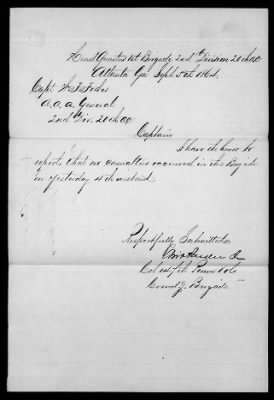 Head Quarters 1st Brigade 2nd Division 20th AC
Atlanta Ga Sept. 5th 1864.
Capt
A. A. A. General
2nd Div. 20th AC
Captain
I have the honor to
report that no casualties occurred in this Brigade
on yesterday 4th inst.
Respectfully Submitted
Col Penna Vols
Comd'g Brigade